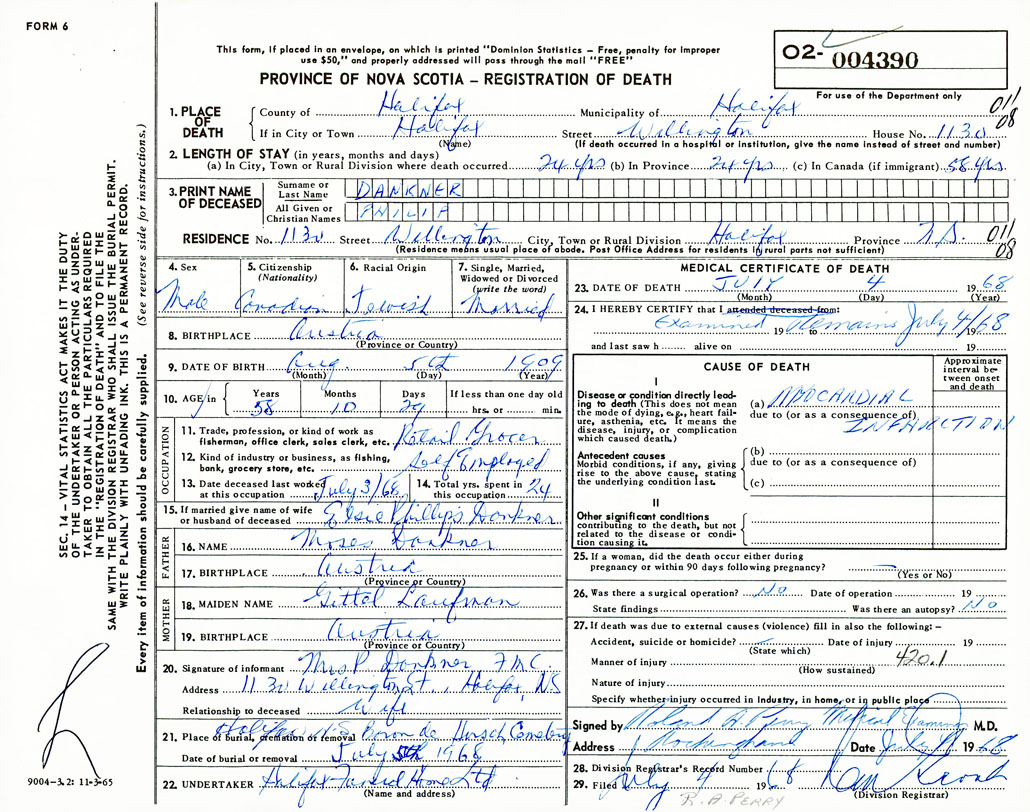 FORM 6
This form, if placed in an envelope, on which is printed "Dominion Statistics – Free, penalty for improper
use $50," and properly addressed will pass through the mail "FREE"
PROVINCE OF NOVA SCOTIA – REGISTRATION OF DEATH
O2- 004390
For use of the Department only
011
08
1. PLACE OF DEATH County of Halifax Municipality of Halifax
If in City or Town Halifax Street Wellington House No. 1130
(Name) (If death occurred in a hospital or institution, give the name instead of street and number)
2. LENGTH OF STAY (in years, months and days)
(a) In City, Town or Rural Division where death occurred 24 yrs (b) In Province 24 yrs (c) In Canada (if immigrant) 58 yrs
3. PRINT NAME OF DECEASED Surname or Last Name DANKNER
All Given or Christian Names PHILIP
RESIDENCE No. 1130 Street Wellington City, Town or Rural Division Halifax Province N.S. 011
08
(Residence means usual place of abode. Post Office Address for residents in rural parts not sufficient)
4. Sex Male
5. Citizenship (Nationality) Canadian
6. Racial Origin Jewish
7. Single, Married, Widowed or Divorced (write the word) Married
8. BIRTHPLACE Austria
(Province or Country)
9. DATE OF BIRTH Aug. 5th 1909
(Month) (Day) (Year)
10. AGE in Years 58 Months 10 Days 29 If less than one day old
hrs. or min.
OCCUPATION
11. Trade, profession, or kind of work as fisherman, office clerk, sales clerk, etc. Retail Grocer
12. Kind of industry or business, as fishing, bank, grocery store, etc. Self Employed
13. Date deceased last worked at this occupation July 3/68
14. Total yrs. spent in this occupation 24
15. If married give name of wife or husband of deceased Elsie Phillips Dankner
FATHER
16. NAME Moses Dankner
17. BIRTHPLACE Austria
(Province or Country)
MOTHER
18. MAIDEN NAME Gittel Laufman
19. BIRTHPLACE Austria
(Province or Country)
20. Signature of informant Mrs P Dankner,
Address 1130 Wellington St., Halifax, NS
Relationship to deceased Wife
21. Place of burial, cremation or removal Halifax Baron de Hirsch Cemetery
Date of burial or removal July 5th 1968
22. UNDERTAKER Halifax Funeral Home Ltd
(Name and address)
MEDICAL CERTIFICATE OF DEATH
23. DATE OF DEATH JULY 4 1968
(Month) (Day) (Year)
24. I HEREBY CERTIFY that I attended deceased from:
Examined 19 to Remains July 4/68 19
and last saw h alive on 19
CAUSE OF DEATH
Approximate interval between onset and death
I
Disease or condition directly leading to death (This does not mean the mode of dying, e.g., heart failure, asthenia, etc. It means the disease, injury, or complication which caused death.)
(a) MYOCARDIAL
due to (or as a consequence of)
INFARCTION
Antecedent causes
Morbid conditions, if any, giving rise to the above cause, stating the underlying condition last.
(b)
due to (or as a consequence of)
(c)
II
Other significant conditions
contributing to the death, but not related to the disease or condition causing it.
25. If a woman, did the death occur either during
pregnancy or within 90 days following pregnancy?
(Yes or No)
26. Was there a surgical operation? No Date of operation 19
State findings Was there an autopsy? No
27. If death was due to external causes (violence) fill in also the following:–
Accident, suicide or homicide? Date of injury 19
(State which)
Manner of injury 420.1
(How sustained)
Nature of injury
Specify whether injury occurred in Industry, in home, or in public place
Signed by Roland A. Perry Medical Examiner M.D.
Address Rockingham Date July 4 1968
28. Division Registrar's Record Number
29. Filed July 4 19
(Division Registrar)
R. A. PERRY
SEC. 14 – VITAL STATISTICS ACT MAKES IT THE DUTY
OF THE UNDERTAKER OR PERSON ACTING AS UNDER-
TAKER TO OBTAIN ALL THE PARTICULARS REQUIRED
IN THE "REGISTRATION OF DEATH" AND TO FILE THE
SAME WITH THE DIVISION REGISTRAR WHO SHALL ISSUE THE BURIAL PERMIT.
WRITE PLAINLY WITH UNFADING INK. THIS IS A PERMANENT RECORD.
Every item of information should be carefully supplied. (See reverse side for instructions.)
9004-3.2: 11-3-65